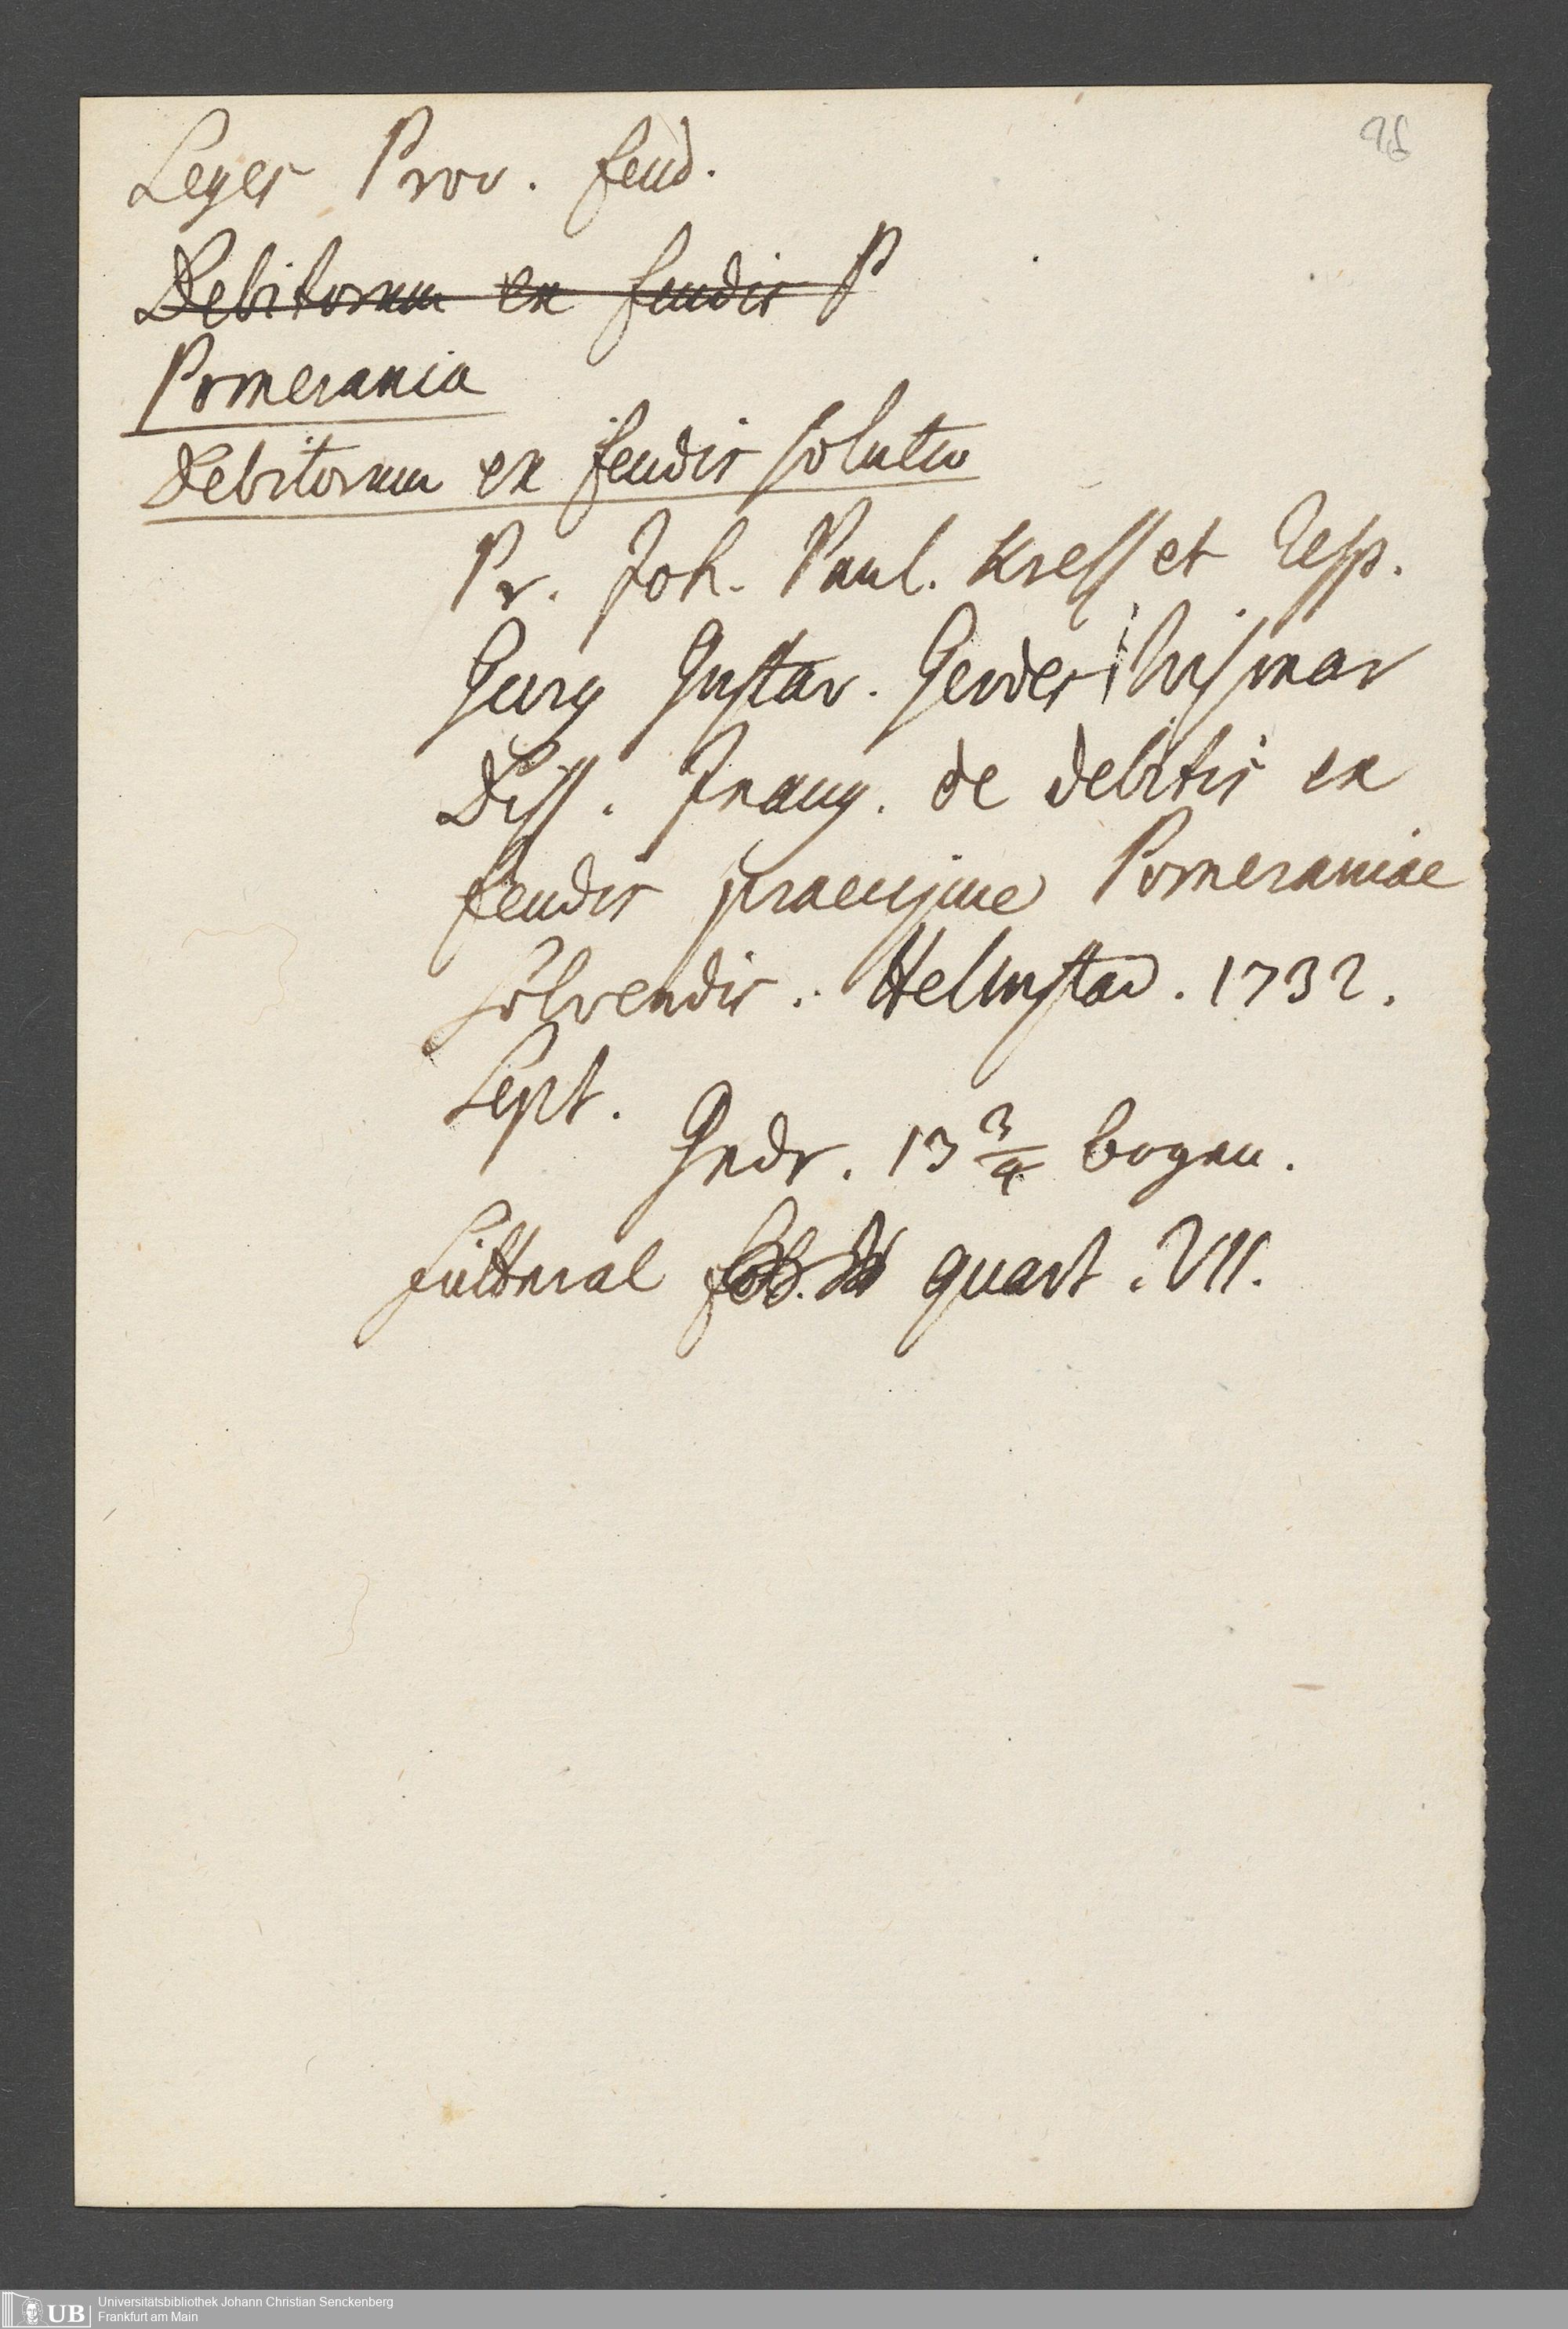 98
Leges Prov. feud.
Debitorum ex feudis P
Pomerania
Debitorum ex feudis solutio
Pr. Joh. Paul. Kress et Resp.
Georg Gustav. Gerdes Wismar
Diss. Inaug. de debitis ex
feudis praecipue Pomeraniae
solvendis. Helmstad. 1732.
Sept.
Gedr. 13 3/4 bogen.
futteral quart. VII.
UB Universitätsbibliothek Johann Christian Senckenberg
Frankfurt am Main